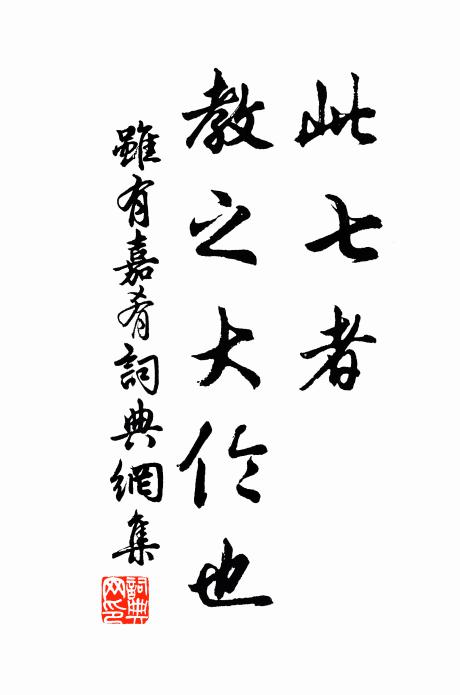 此七者
教之大伦也
雖有嘉肴詞典網集
詞典
网印